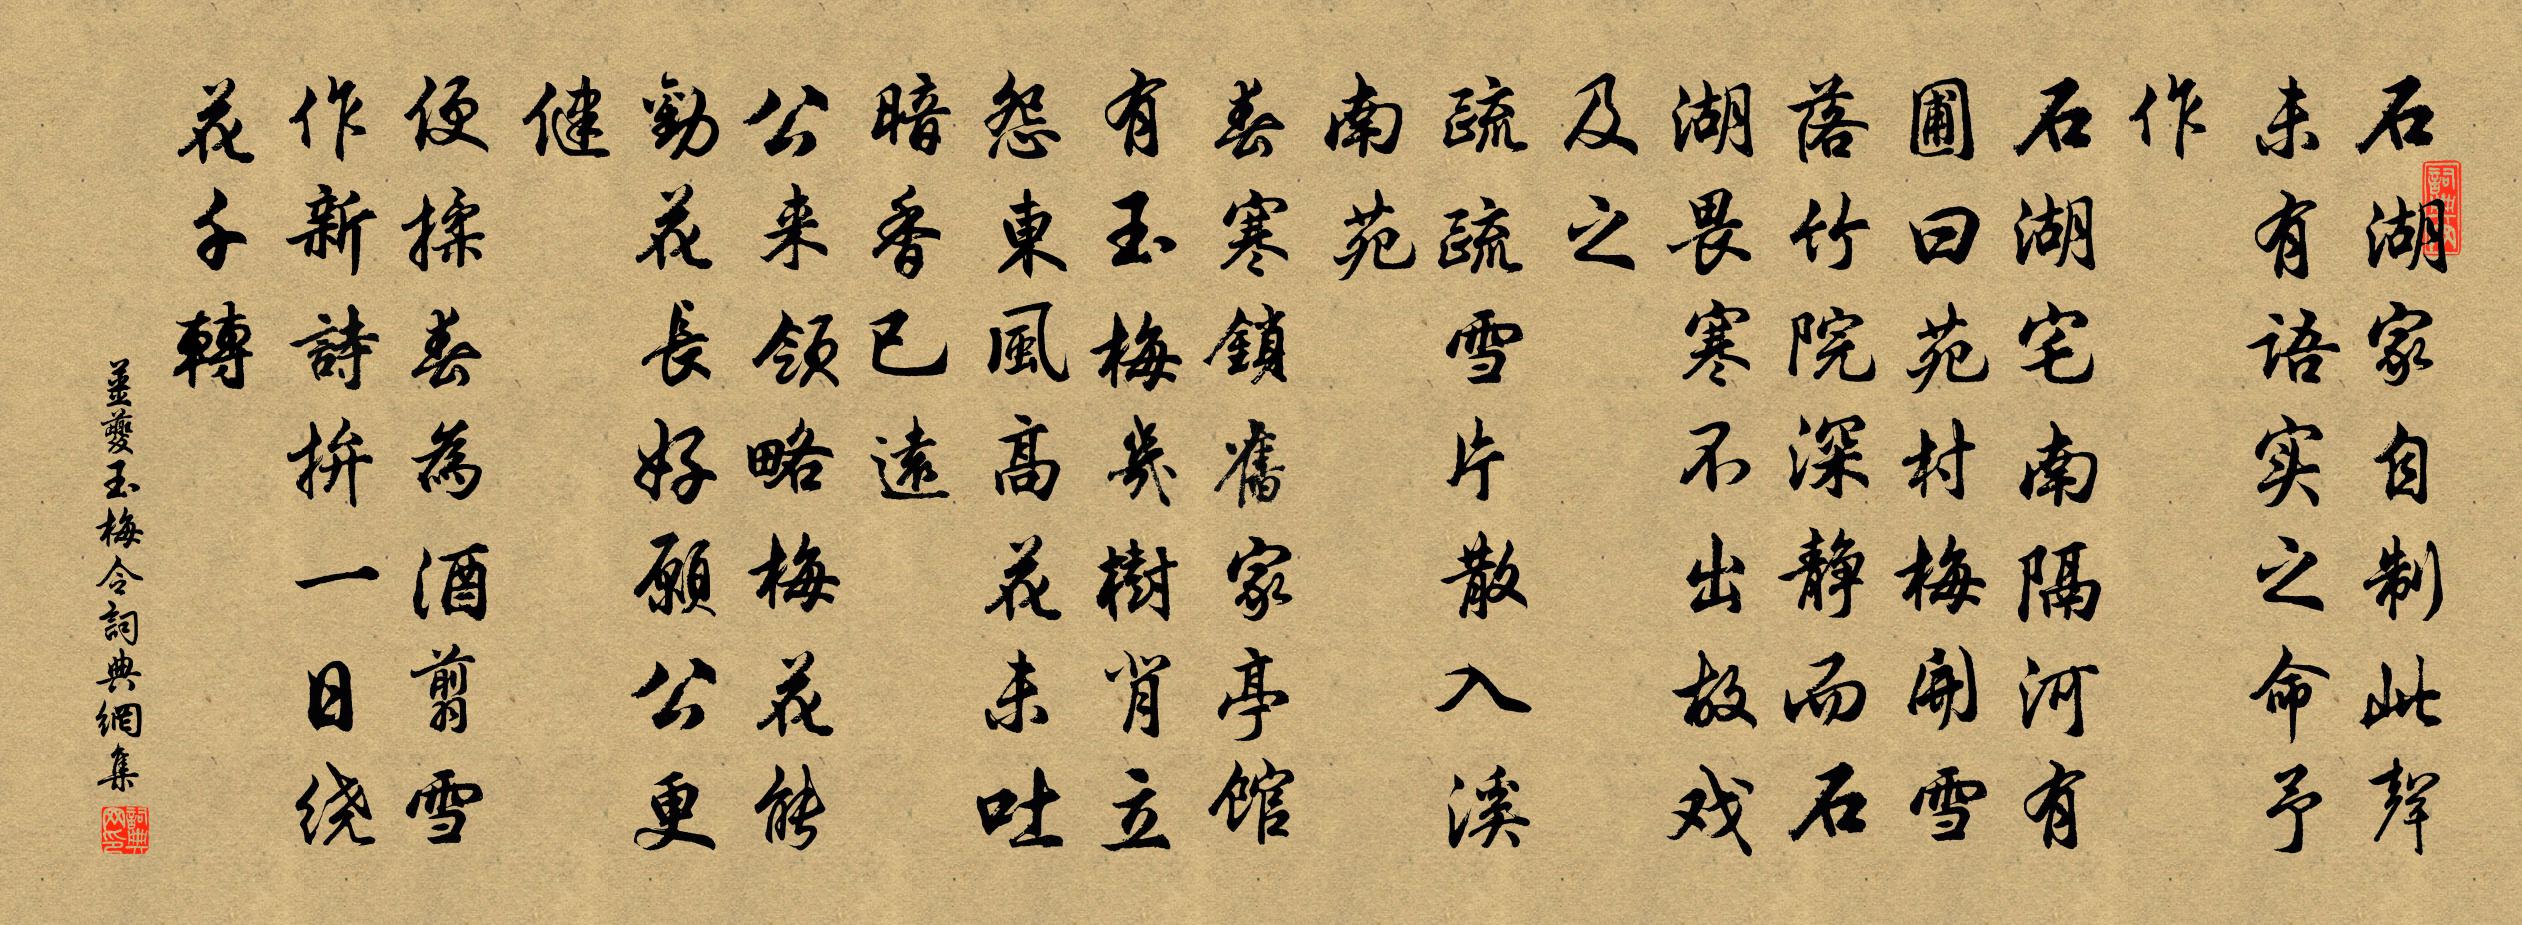 石湖家自制此聲
未有语实之命予
作
石湖宅南隔河有
圃曰苑村梅開雪
落竹院深静而石
湖畏寒不出故戏
及之
疏疏雪片散入溪
南苑
春寒鎖舊家亭館
有玉梅幾樹背立
怨東風高花未吐
暗香已遠
公来領略梅花能
勸花長好願公更
健
便揉春為酒剪雪
作新詩拚一日绕
花千轉
姜夔玉梅令詞典網集